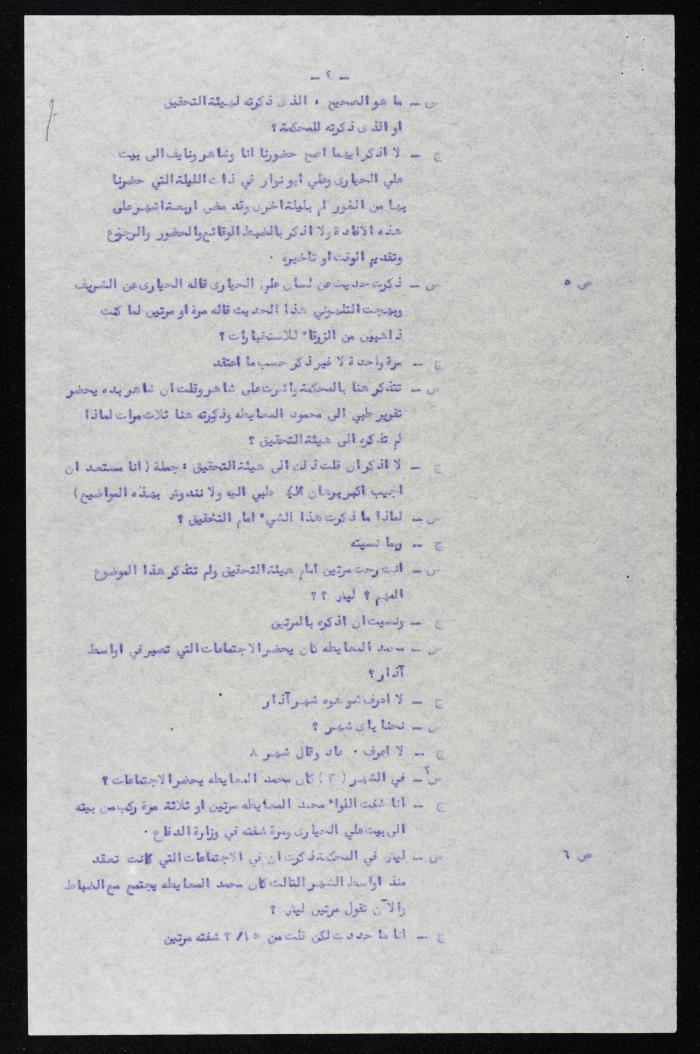 - ٢ -
س - ما هو الصحيح ، الذى ذكرته لهيئة التحقيق
او الذى ذكرته للمحكمة ؟
ج - لا اذكر ايهما اصح حضورنا انا وشاهر ونايف الى بيت
علي الحيارى وعلي ابو نوار في ذات الليلة التي حضرنا
بها من الغور ام بليلة اخرى وقد مضى اربعة اشهر على
هذه الافادة ولا اذكر بالضبط الوقائع والحضور والرجوع
وتقديم الوقت او تاخيره .
ص ٥ س - ذكرت حديث عن لسان علي الحيارى قاله الحيارى عن الشريف
وبهجت التلهوني هذا الحديث قاله مرة او مرتين لما كنت
ذاهبين من الزرقاء للاستخبارات ؟
ج - مرة واحدة لا غير ذكر حسب ما اعتقد
س - تتذكر هنا بالمحكمة واشرت على شاهر وقلت ان شاهر بده يحضر
تقرير طبي الى محمود المعايطه وذكرته هنا ثلاث مرات لماذا
لم تذكره الى هيئة التحقيق ؟
ج - لا اذكر ان قلت ذلك الى هيئة التحقيق : جملة ( انا مستعد ان
اجيب اكبر برهان طبي اليه ولا نندوش بهذه المواضيع )
س - لماذا ما ذكرت هذا الشيء امام التحقيق ؟
ج - ربما نسيته
س - انت رحت مرتين امام هيئة التحقيق ولم تتذكر هذا الموضوع
المهم ؟ ليش ؟ ؟
ج - ونسيت ان اذكره بالمرتين
س - محمد المعايطه كان يحضر الاجتماعات التي تصير في اواسط
آذار ؟
ج - لا اعرف شو هوه شهر آذار
س - نحنا باى شهر ؟
ج - لا اعرف . عاد وقال شهر ٨
س - في الشهر ( ٣ ) كان محمد المعايطه يحضر الاجتماعات ؟
ج - انا شفت اللواء محمد المعايطه مرتين او ثلاثة مرة ركب من بيته
الى بيت علي الحيارى ومرة شفته في وزارة الدفاع .
ص ٦ س - ليش في المحكمة ذكرت ان في الاجتماعات التي كانت تعقد
منذ اواسط الشهر الثالث كان محمد المعايطه يجتمع مع الضباط
والآن تقول مرتين ليش ؟
ج - انا ما حددت لكن قلت من ٣/١٥ شفته مرتين